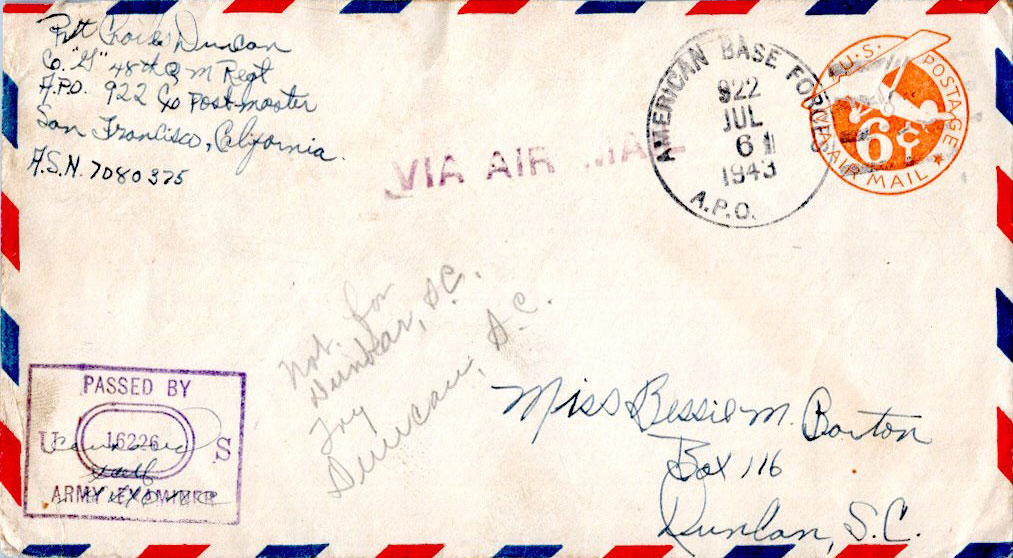 Pvt Charles Duncan
Co. "G" 48th Q M Regt
A.P.O. 922 c/o Postmaster
San Francisco, California.
A.S.N. 7080375
VIA AIR MAIL
AMERICAN BASE FORCES
922
JUL
6
1943
A.P.O.
U.S. POSTAGE
6¢
VIA AIR MAIL
Not for
Dunbar, S.C.
Try
Duncan, S.C.
PASSED BY
U 16226 S
ARMY EXAMINER
Miss Bessie M. Barton
Box 116
Duncan, S.C.